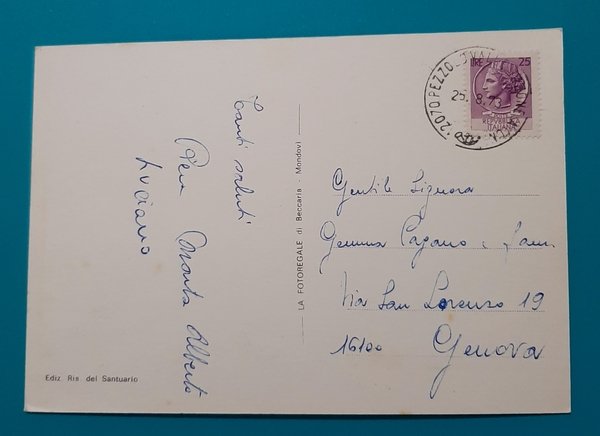 Tanti saluti
Piera Marita Alberto
Luciano
Ediz Ris del Santuario
LA FOTOREGALE di Beccaria - Mondovì
12070 PEZZOLO VALLE UZZONE
25.8.73
LIRE 25
Gentile Signora
Gemma Pagano e fam.
Via San Lorenzo 19
16100 Genova